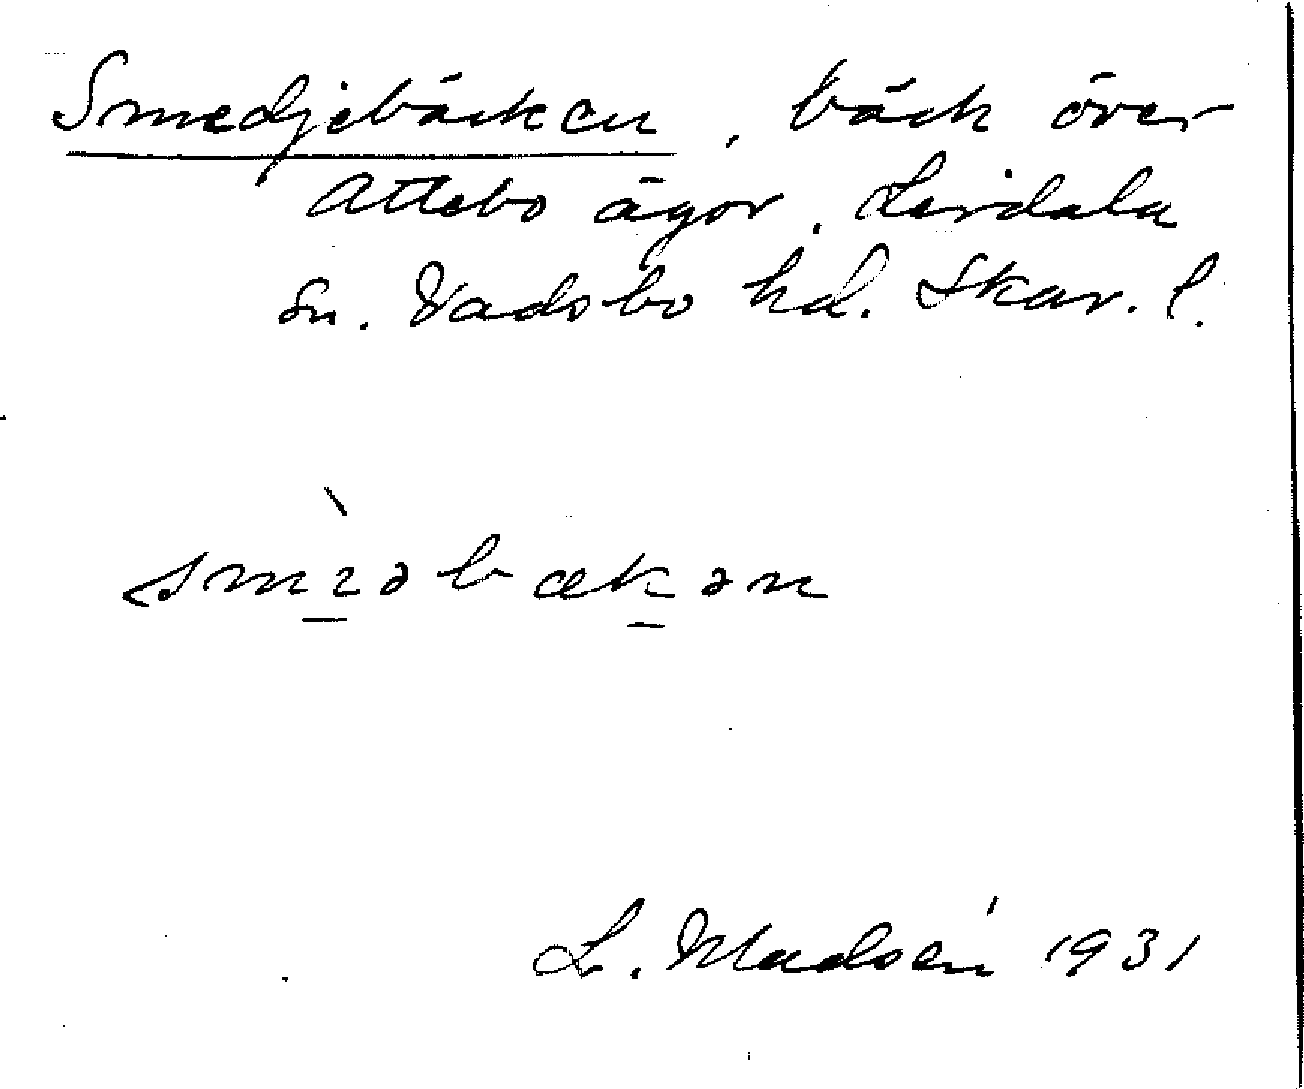 Smedjebäcken, bäck över
Attebo ägor. Lerdala
sn. Vadsbo hd. Skar. l.
smɩ̀əbækən
L. Madsén 1931